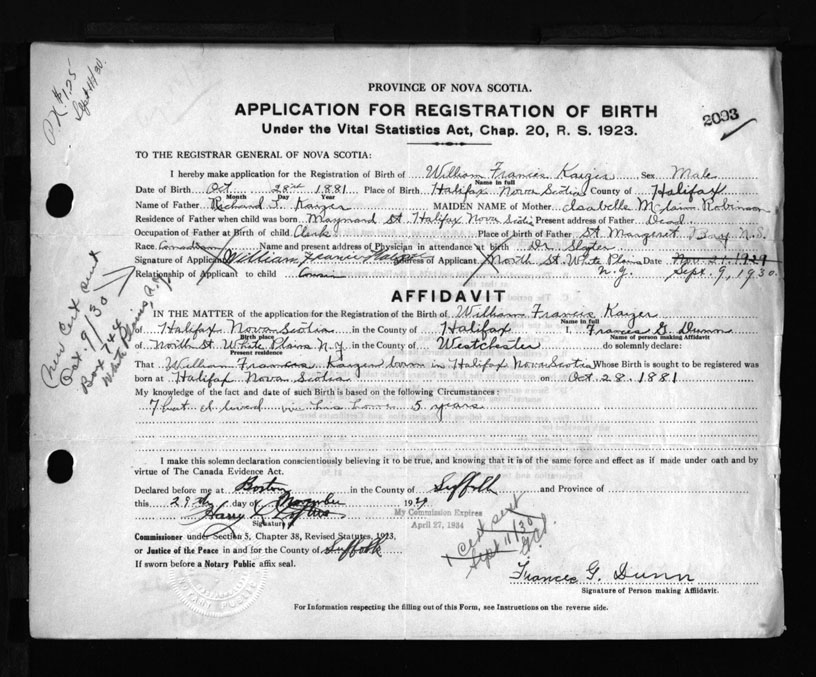 PX $1.25
Sept 11/30
PROVINCE OF NOVA SCOTIA.
APPLICATION FOR REGISTRATION OF BIRTH
2093
Under the Vital Statistics Act, Chap. 20, R. S. 1923.
TO THE REGISTRAR GENERAL OF NOVA SCOTIA:
I hereby make application for the Registration of Birth of William Francis Kaizer Sex Male
Name in full
Date of Birth Oct 28th 1881 Place of Birth Halifax Nova Scotia County of Halifax
Month Day Year
Name of Father Richard Kaizer MAIDEN NAME of Mother Isabelle McLain Robinson
Residence of Father when child was born Maynard St. Halifax Nova Scotia Present address of Father Dead
Occupation of Father at Birth of child Clerk Place of birth of Father St. Margeret Bay N.S.
Race Canadian Name and present address of Physician in attendance at birth Dr. Slayter
Signature of Applicant William Francis Kaizer Address of Applicant North St. White Plains N.Y. Date Nov. 21. 1929 Sept. 9, 1930.
Relationship of Applicant to child Cousin
New Cert sent
Oct. 9/30
Box 744
White Plains, N.Y.
AFFIDAVIT
IN THE MATTER of the application for the Registration of Birth of William Francis Kaizer
Name in full
of Halifax Nova Scotia in the County of Halifax I, Francis G. Dunn
Birth place Name of person making Affidavit
of North St. White Plains N.Y in the County of Westchester do solemnly declare:
Present residence
That William Francis Kaizer born in Halifax Nova Scotia Whose Birth is sought to be registered was
born at Halifax Nova Scotia on Oct 28. 1881
My knowledge of the fact and date of such Birth is based on the following Circumstances:
That I lived in his home 5 years
I make this solemn declaration conscientiously believing it to be true, and knowing that it is of the same force and effect as if made under oath and by
virtue of The Canada Evidence Act.
Declared before me at Boston in the County of Suffolk and Province of
this 29th day of November 1929
My Commission Expires
April 27, 1934
Harry
Signature
1 Cert sent
Sept 11/30
Commissioner under Section 5, Chapter 38, Revised Statutes, 1923,
or Justice of the Peace in and for the County of Suffolk
If sworn before a Notary Public affix seal.
Francis G. Dunn
Signature of Person making Affidavit.
For Information respecting the filling out of this Form, see Instructions on the reverse side.